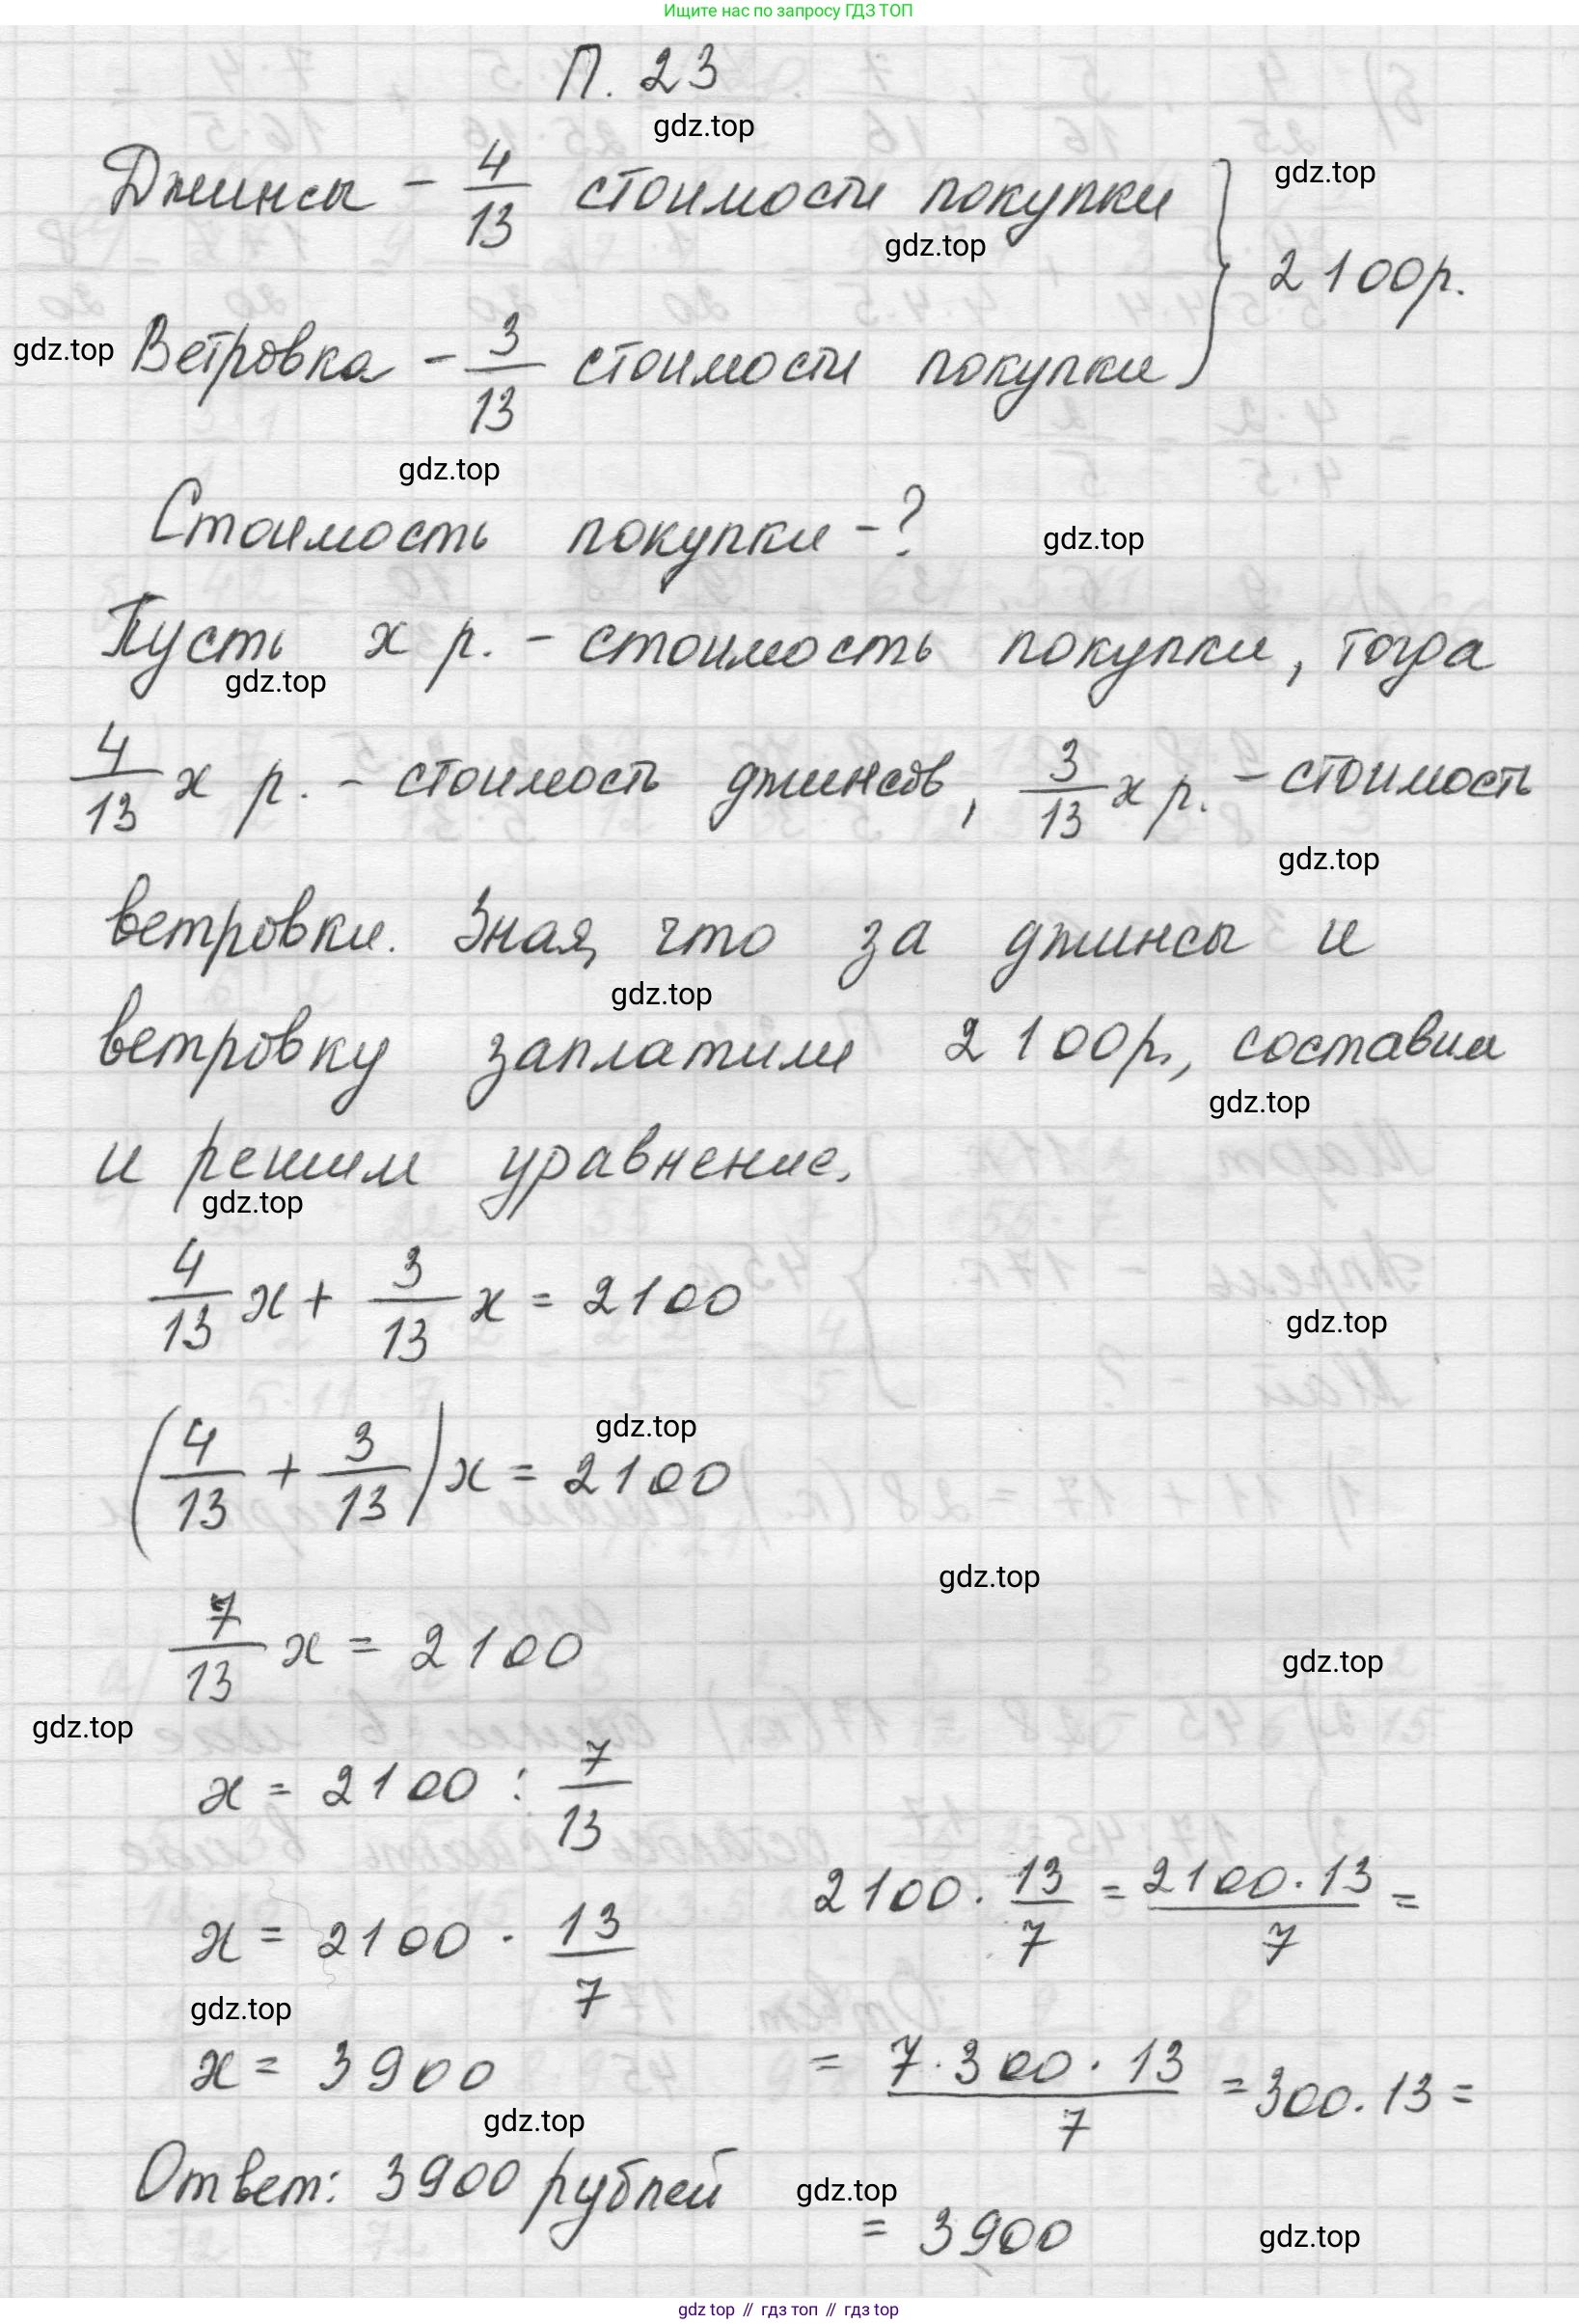 Ищите нас по запросу ГДЗ ТОП
П. 23
gdz.top
Джинсы - 4/13 стоимости покупки
gdz.top
gdz.top
2100р.
gdz.top
Ветровка - 3/13 стоимости покупки
gdz.top
Стоимость покупки - ?
gdz.top
Пусть х р. - стоимость покупки, тогда
gdz.top
4/13 х р. - стоимость джинсов, 3/13 х р. - стоимость
gdz.top
ветровки. Зная, что за джинсы и
gdz.top
ветровку заплатили 2100р., составим
gdz.top
и решим уравнение.
gdz.top
4/13 х + 3/13 х = 2100
gdz.top
gdz.top
(4/13 + 3/13) х = 2100
gdz.top
7/13 х = 2100
gdz.top
gdz.top
х = 2100 : 7/13
х = 2100 · 13/7
gdz.top
х = 3900
gdz.top
Ответ: 3900 рублей
2100 · 13/7 = 2100·13/7 =
= 7·300·13/7 = 300·13 =
gdz.top
= 3900
gdz.top
gdz top // гдз топ // гдз top